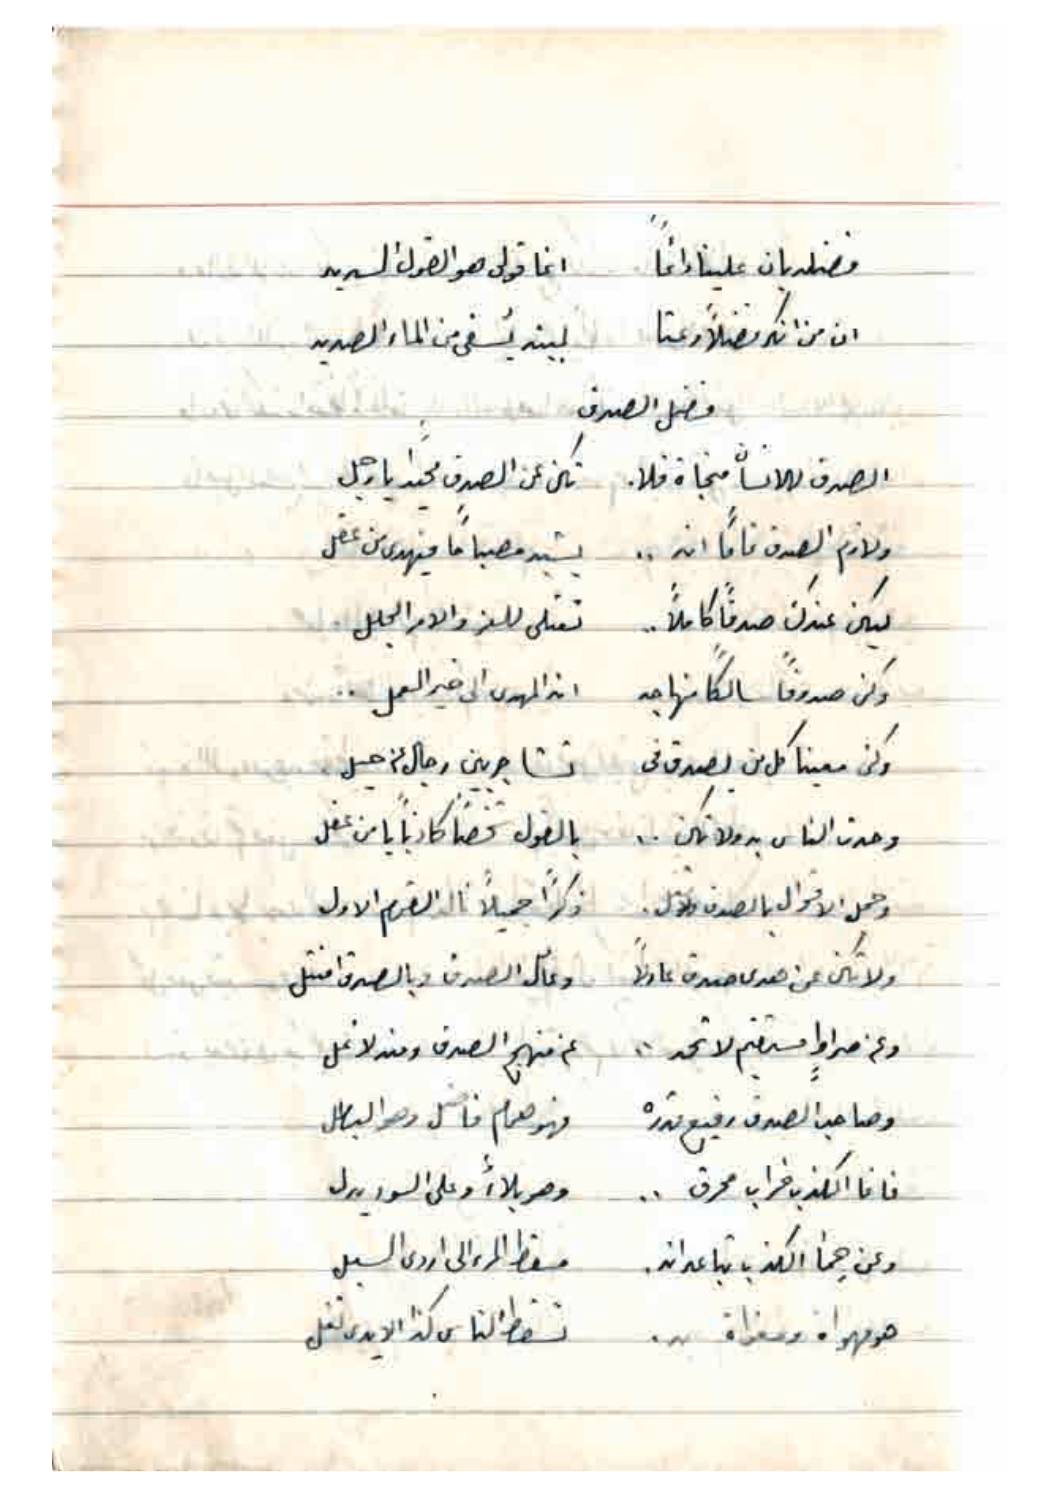 فضله بان علينا دائماً انما قولي هو القول السديد
ان من انكر فضلاً وعتا يُسقى من الماء الصديد
فضل الصدق
الصدق للانسان منجاة فلا. تكن عن الصدق محيداً يا رجل
ولازم الصدق تماماً انه .. مصباحاً فيهدى من عقل
ليكن عندك صدقاً كاملاً .. تعتلى للعز والامر الجلل.
وكن صدوقاً سالكاً منهاجه انه المهدى الى خير العمل ..
وكن معينا كل من يصدق فى رجال
وحدث الناس به ولا تكن .. بالقول شخصاً كاذباً يا من عقل
وجمل الاقوال بالصدق . ذكراً جميلاً نال القوم الاول
ولا تكن عن هدى صدق عادلاً الصدق وبالصدق
وعن صراطٍ مستقيم لا تحد .. عن منهج الصدق ومنه لا تمل
وصاحب الصدق رفيع قدره فهو همام فاضل وهو البطل
فانما الكذب خراب محرق .. وهو بلاءٌ وعلى السوء يدل
وعن الكذب تباعد انه . مسقط المرء الى اردى السبل
هو مهواة به . تسقط الناس كذا الايدى تغل